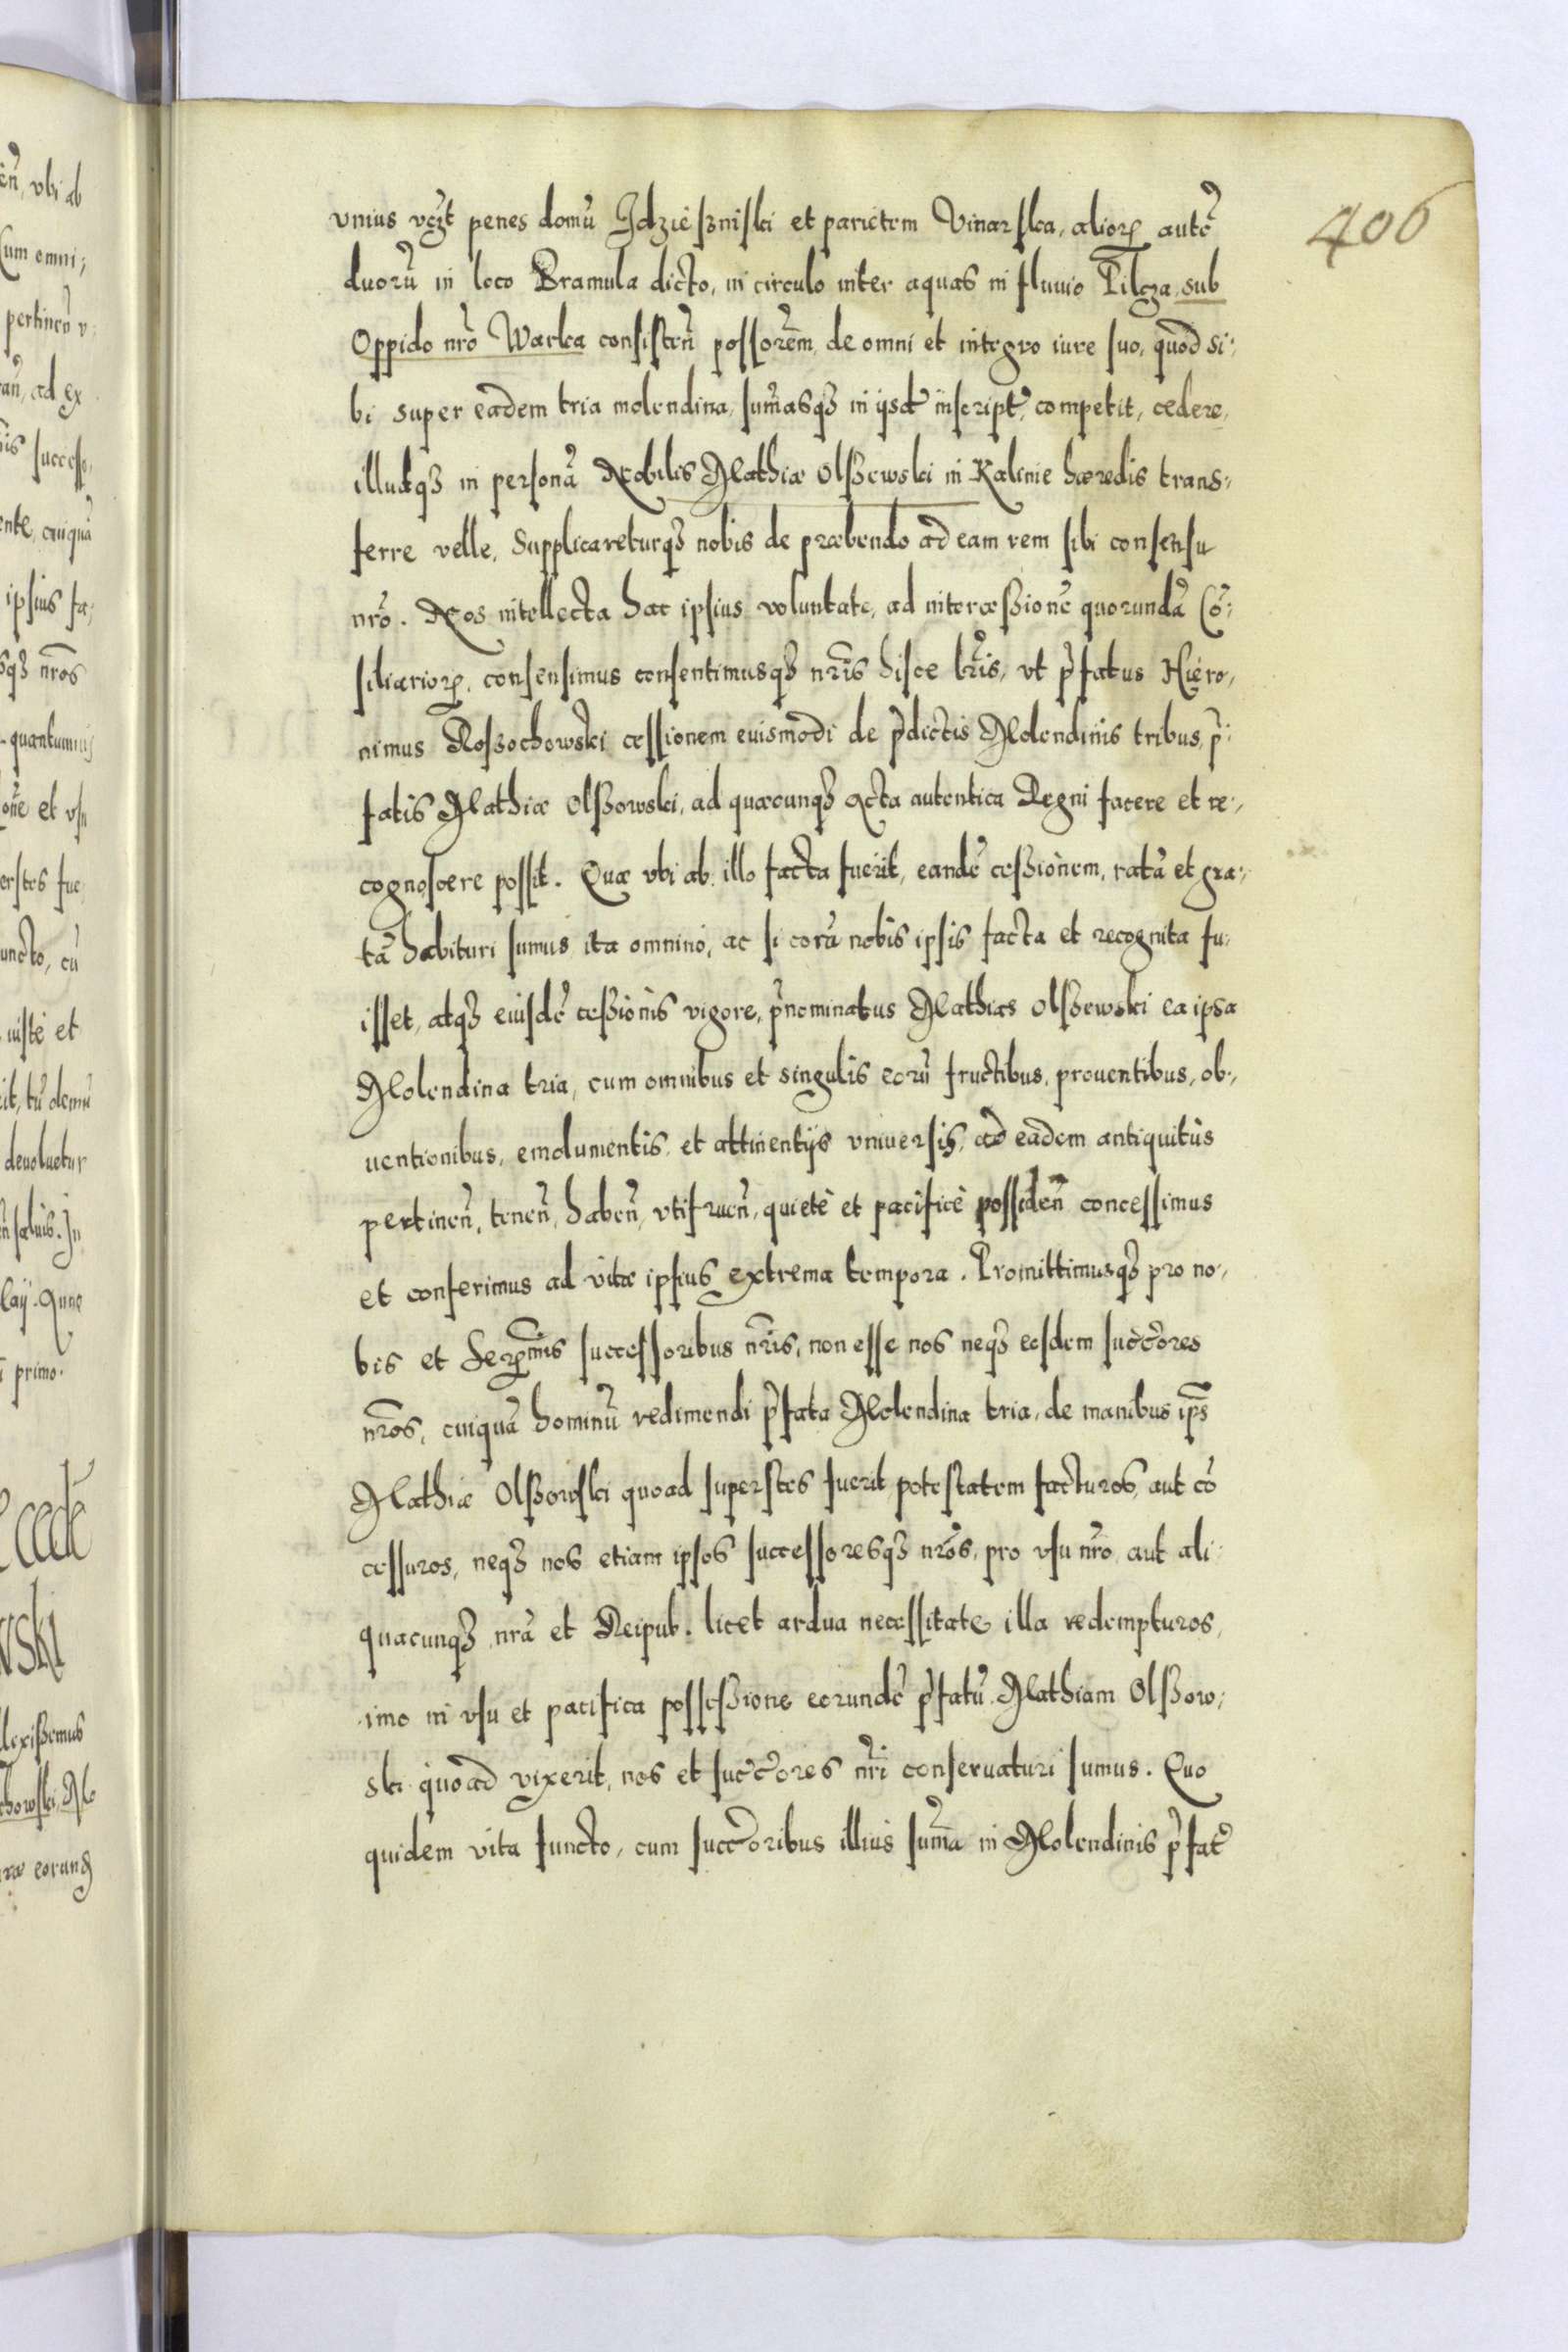 406
vnius včzt penes domũ Idzieszniski et parietem Vinarska, alioꝝ autẽ
duorũ in loco Bramula dicto, in circulo inter aquas in fluuio Pilcza, sub
Oppido nr̃o Warka consisteñ possor̃em, de omni et integro iure suo, quod si-
bi super eadem tria molendina, sum̃asqꝫ in ijsd̃ inscript̃, competit, cedere,
illudqꝫ in personã Nobilis Mathiæ Olszewski in Kalinie hæredis trans-
ferre velle, Supplicareturqꝫ nobis de præbendo ad eam rem sibi consensu
nr̃o. Nos intellecta hac ipsius voluntate, ad intercessionẽ quorundã Cõ-
siliarioꝝ, consensimus consentimusqꝫ nr̃is hisce lr̃is, vt p̃fatus Hiero-
nimus Rossochowski cessionem euismodi de p̃dictis Molendinis tribus, p̃-
fatis Mathiæ Olszowski, ad quæcunqꝫ Acta autentica Regni facere et re-
cognoscere possit. Quæ vbi ab illo facta fuerit, eandẽ cessionem, ratã et gra-
tã habituri sumus ita omnino, ac si corã nobis ipsis facta et recognita fu-
isset, atqꝫ eiusdẽ cessionis vigore, p̃nominatus Mathias Olszewski ea ipsa
Molendina tria, cum omnibus et singulis eorũ fructibus, prouentibus, ob-
uentionibus, emolumentis, et attinentijs vniuersis, ad eadem antiquitus
pertineñ, teneñ, habeñ, vtifrueñ, quietè et pacificè possideñ concessimus
et conferimus ad vitæ ipsius extrema tempora. Promittimusqꝫ pro no-
bis et Serꝑmis successoribus nr̃is, non esse nos neqꝫ eosdem succ̃ores
nr̃os, cuiquã hominũ redimendi p̃fata Molendina tria, de manibus ip̃s
Mathiæ Olszowski quoad superstes fuerit potestatem facturos, aut cõ
cessuros, neqꝫ nos etiam ipsos successoresqꝫ nr̃os, pro vsu nr̃o, aut ali-
quacunqꝫ nr̃a et Reipub. licet ardua necessitate illa redempturos,
imo in vsu et pacifica possessione eorundẽ p̃fatũ Mathiam Olszow-
ski quoad vixerit, nos et succ̃ores nr̃i conseruaturi sumus. Quo
quidem vita functo, cum succ̃oribus illius sum̃a in Molendinis p̃fat̃